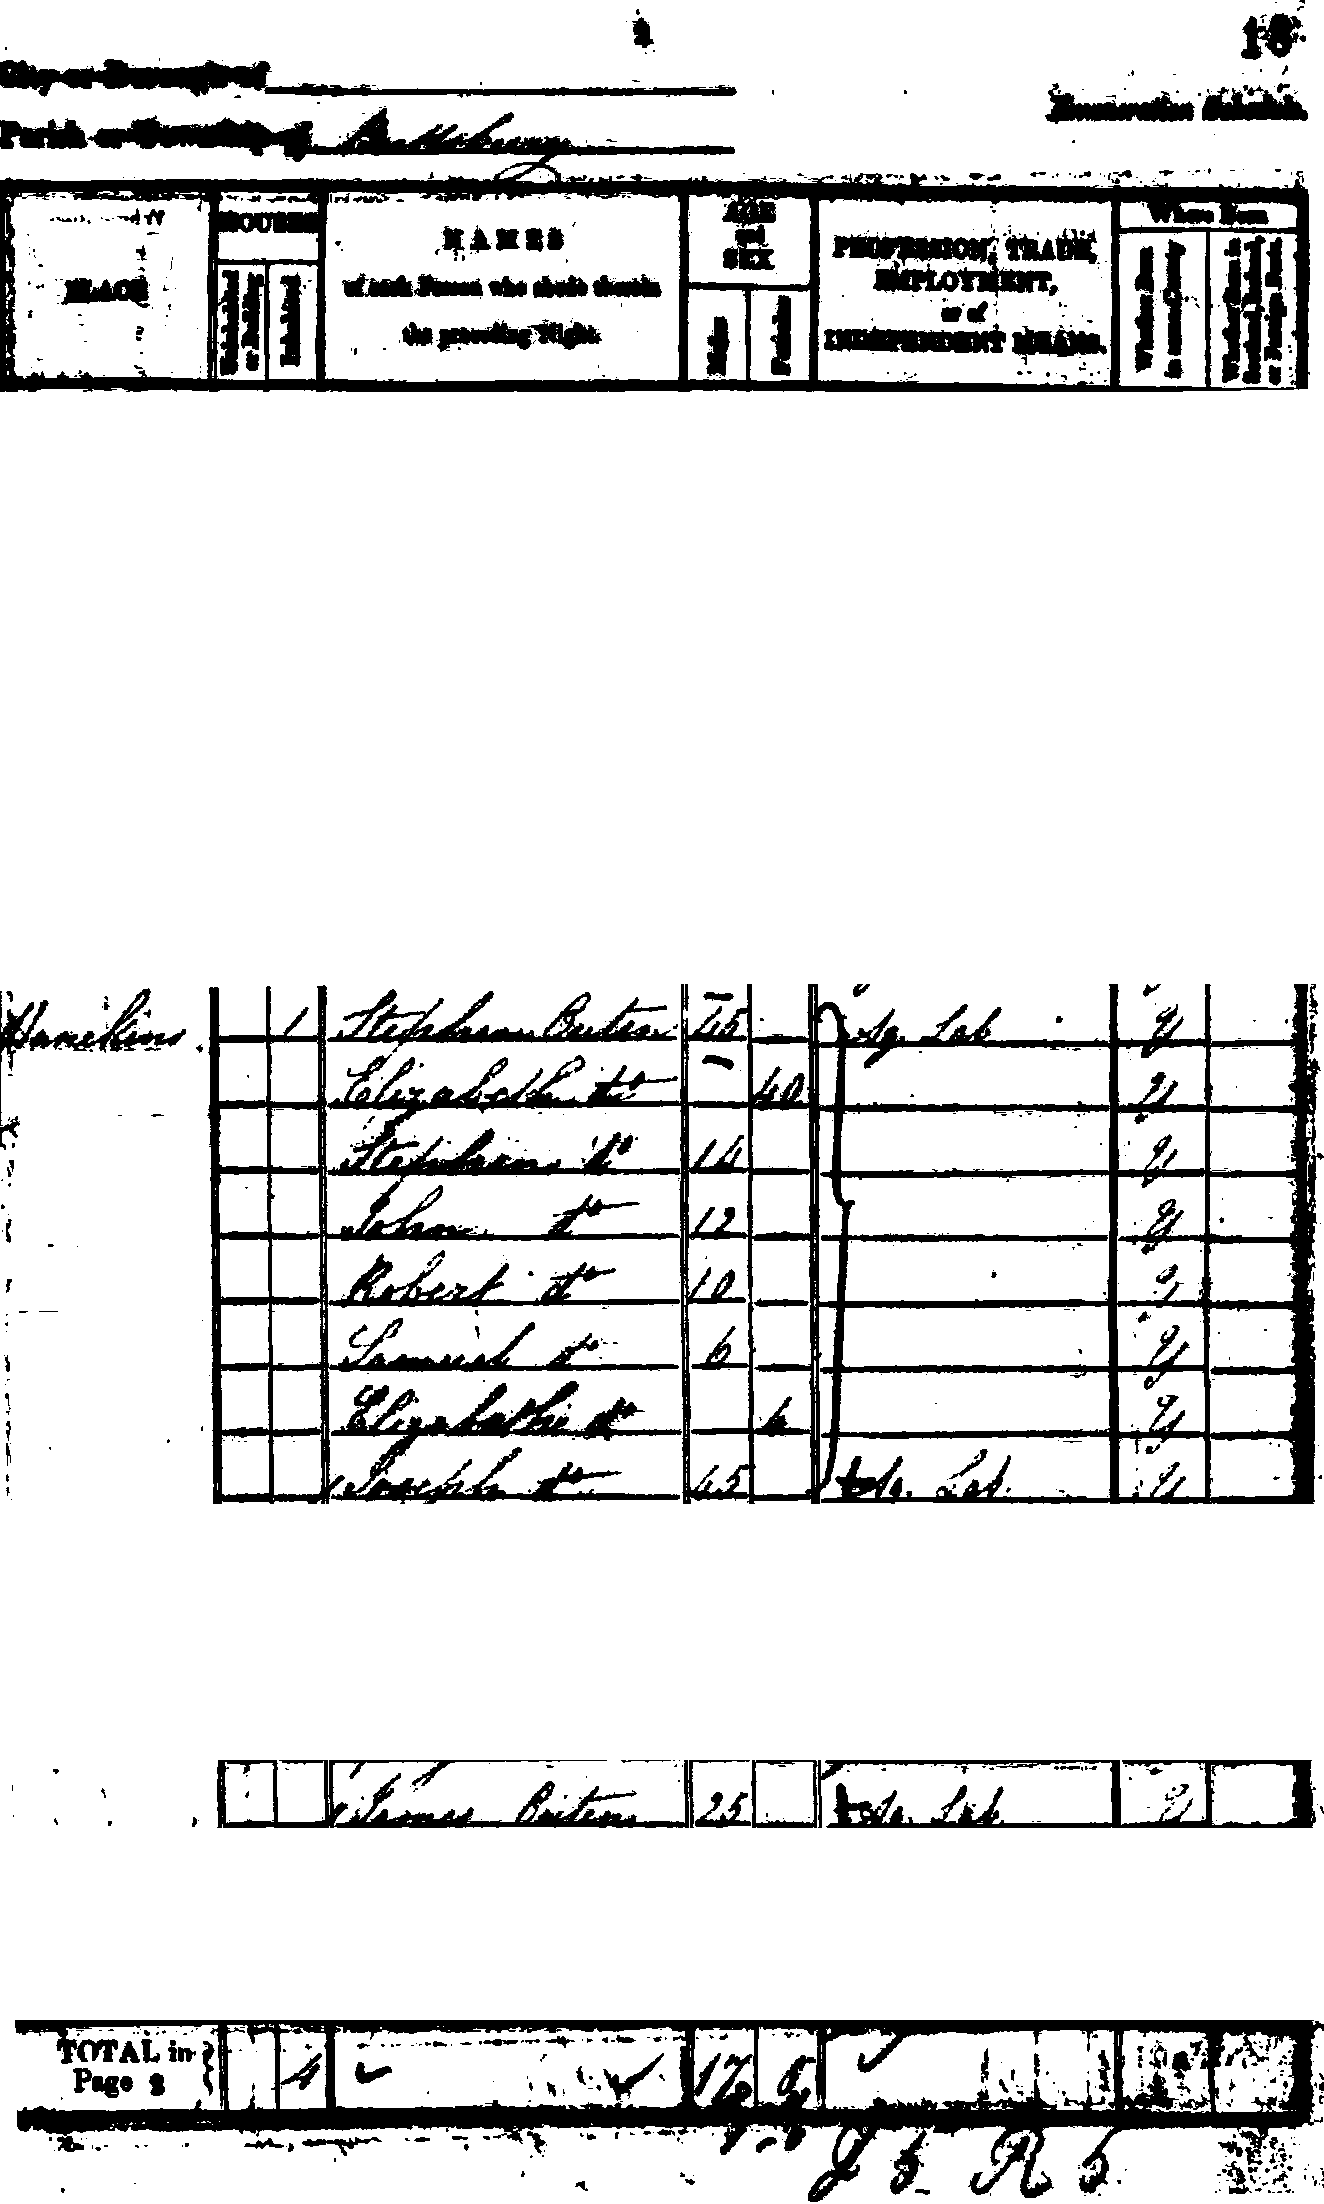 2
18
City or Borough of
Parish or Township of
Enumeration Schedule.
PLACE
HOUSES
Uninhabited or Building
Inhabited
NAMES
of each Person who abode therein
the preceding Night.
AGE
and
SEX
Males
Females
PROFESSION, TRADE,
EMPLOYMENT,
or of
INDEPENDENT MEANS.
Where Born
Whether Born in same County
Whether Born in Scotland, Ireland, or Foreign Parts.
1 Stephen 45 Ag. Lab Y
Elizabeth do 40 Y
Stephen do 14 Y
John do 12 Y
Robert do 10 Y
Samuel do 6 Y
Elizabeth do 6 Y
Joseph do 45 Ag. Lab. Y
James 25 Ag. Lab Y
TOTAL in Page 2 17 8